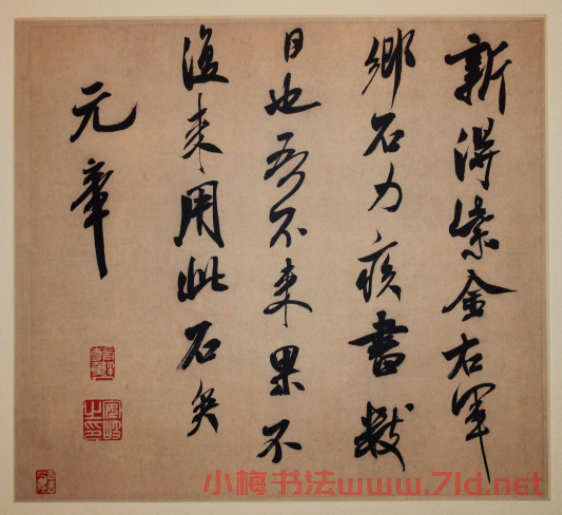 新得紫金右軍
鄉石力疾書數
日也吾不来果不
復来用此石矣
元章
小梅书法www.7ld.net